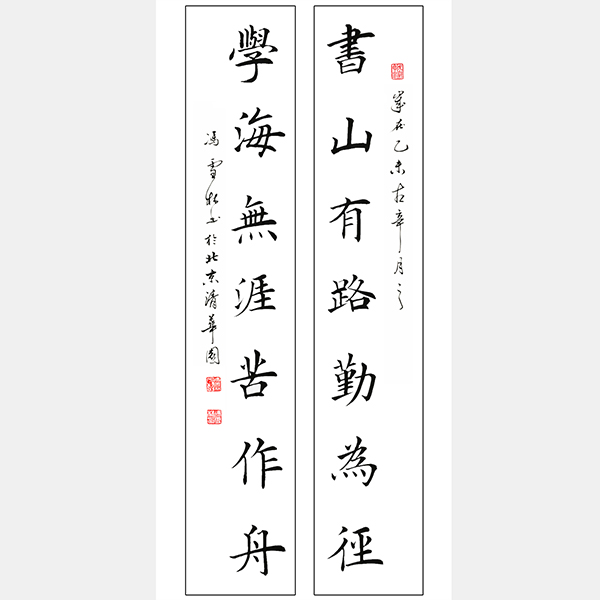 書山有路勤為徑
歲在乙未月
學海無涯苦作舟
馮雪松书於北京清華園